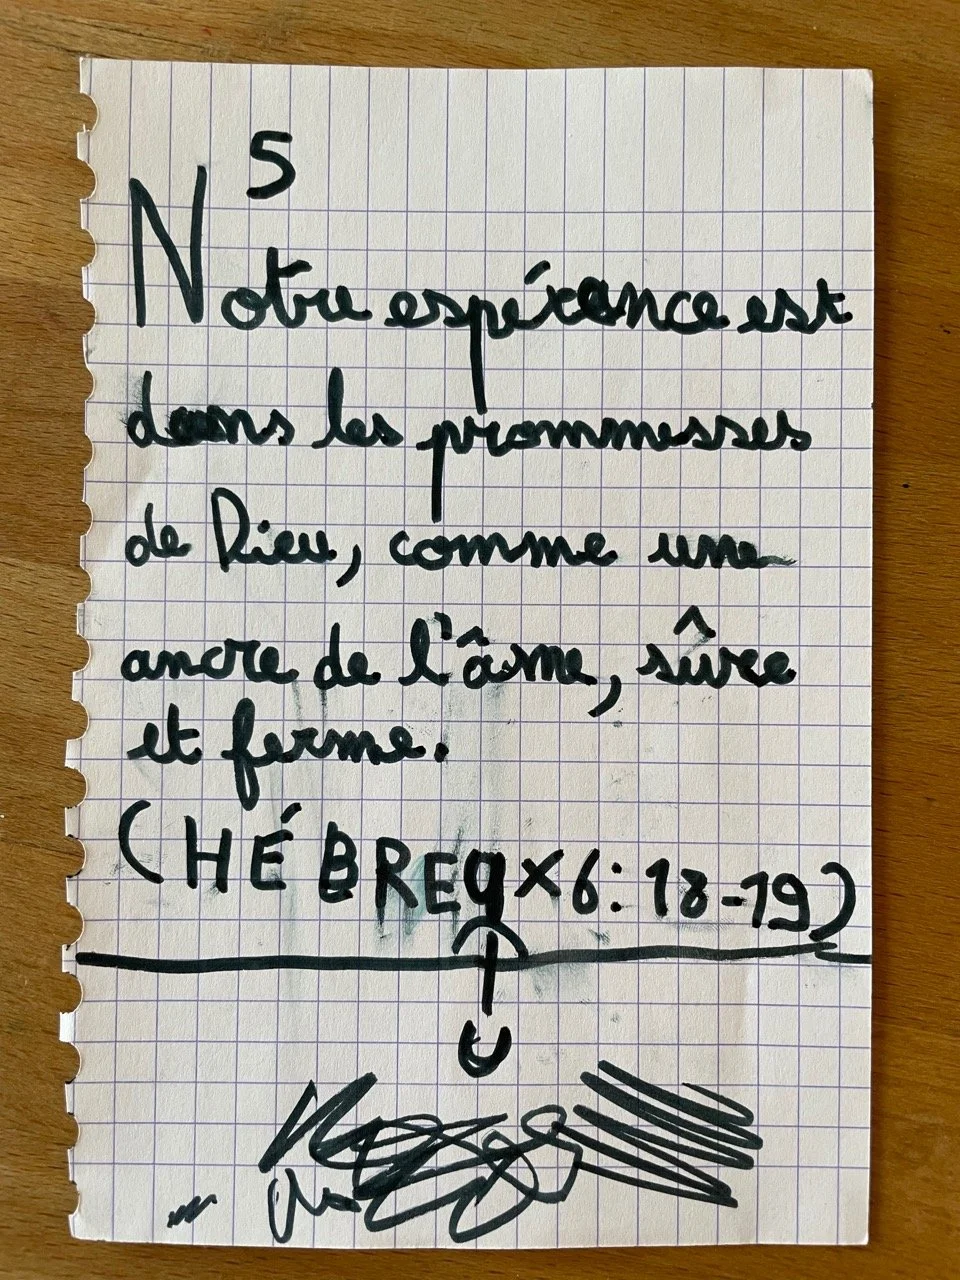 5
Notre espérance est
dans les prommesses
de Dieu, comme une
ancre de l'âme, sûre
et ferme.
(HÉBREUX 6:18-19)